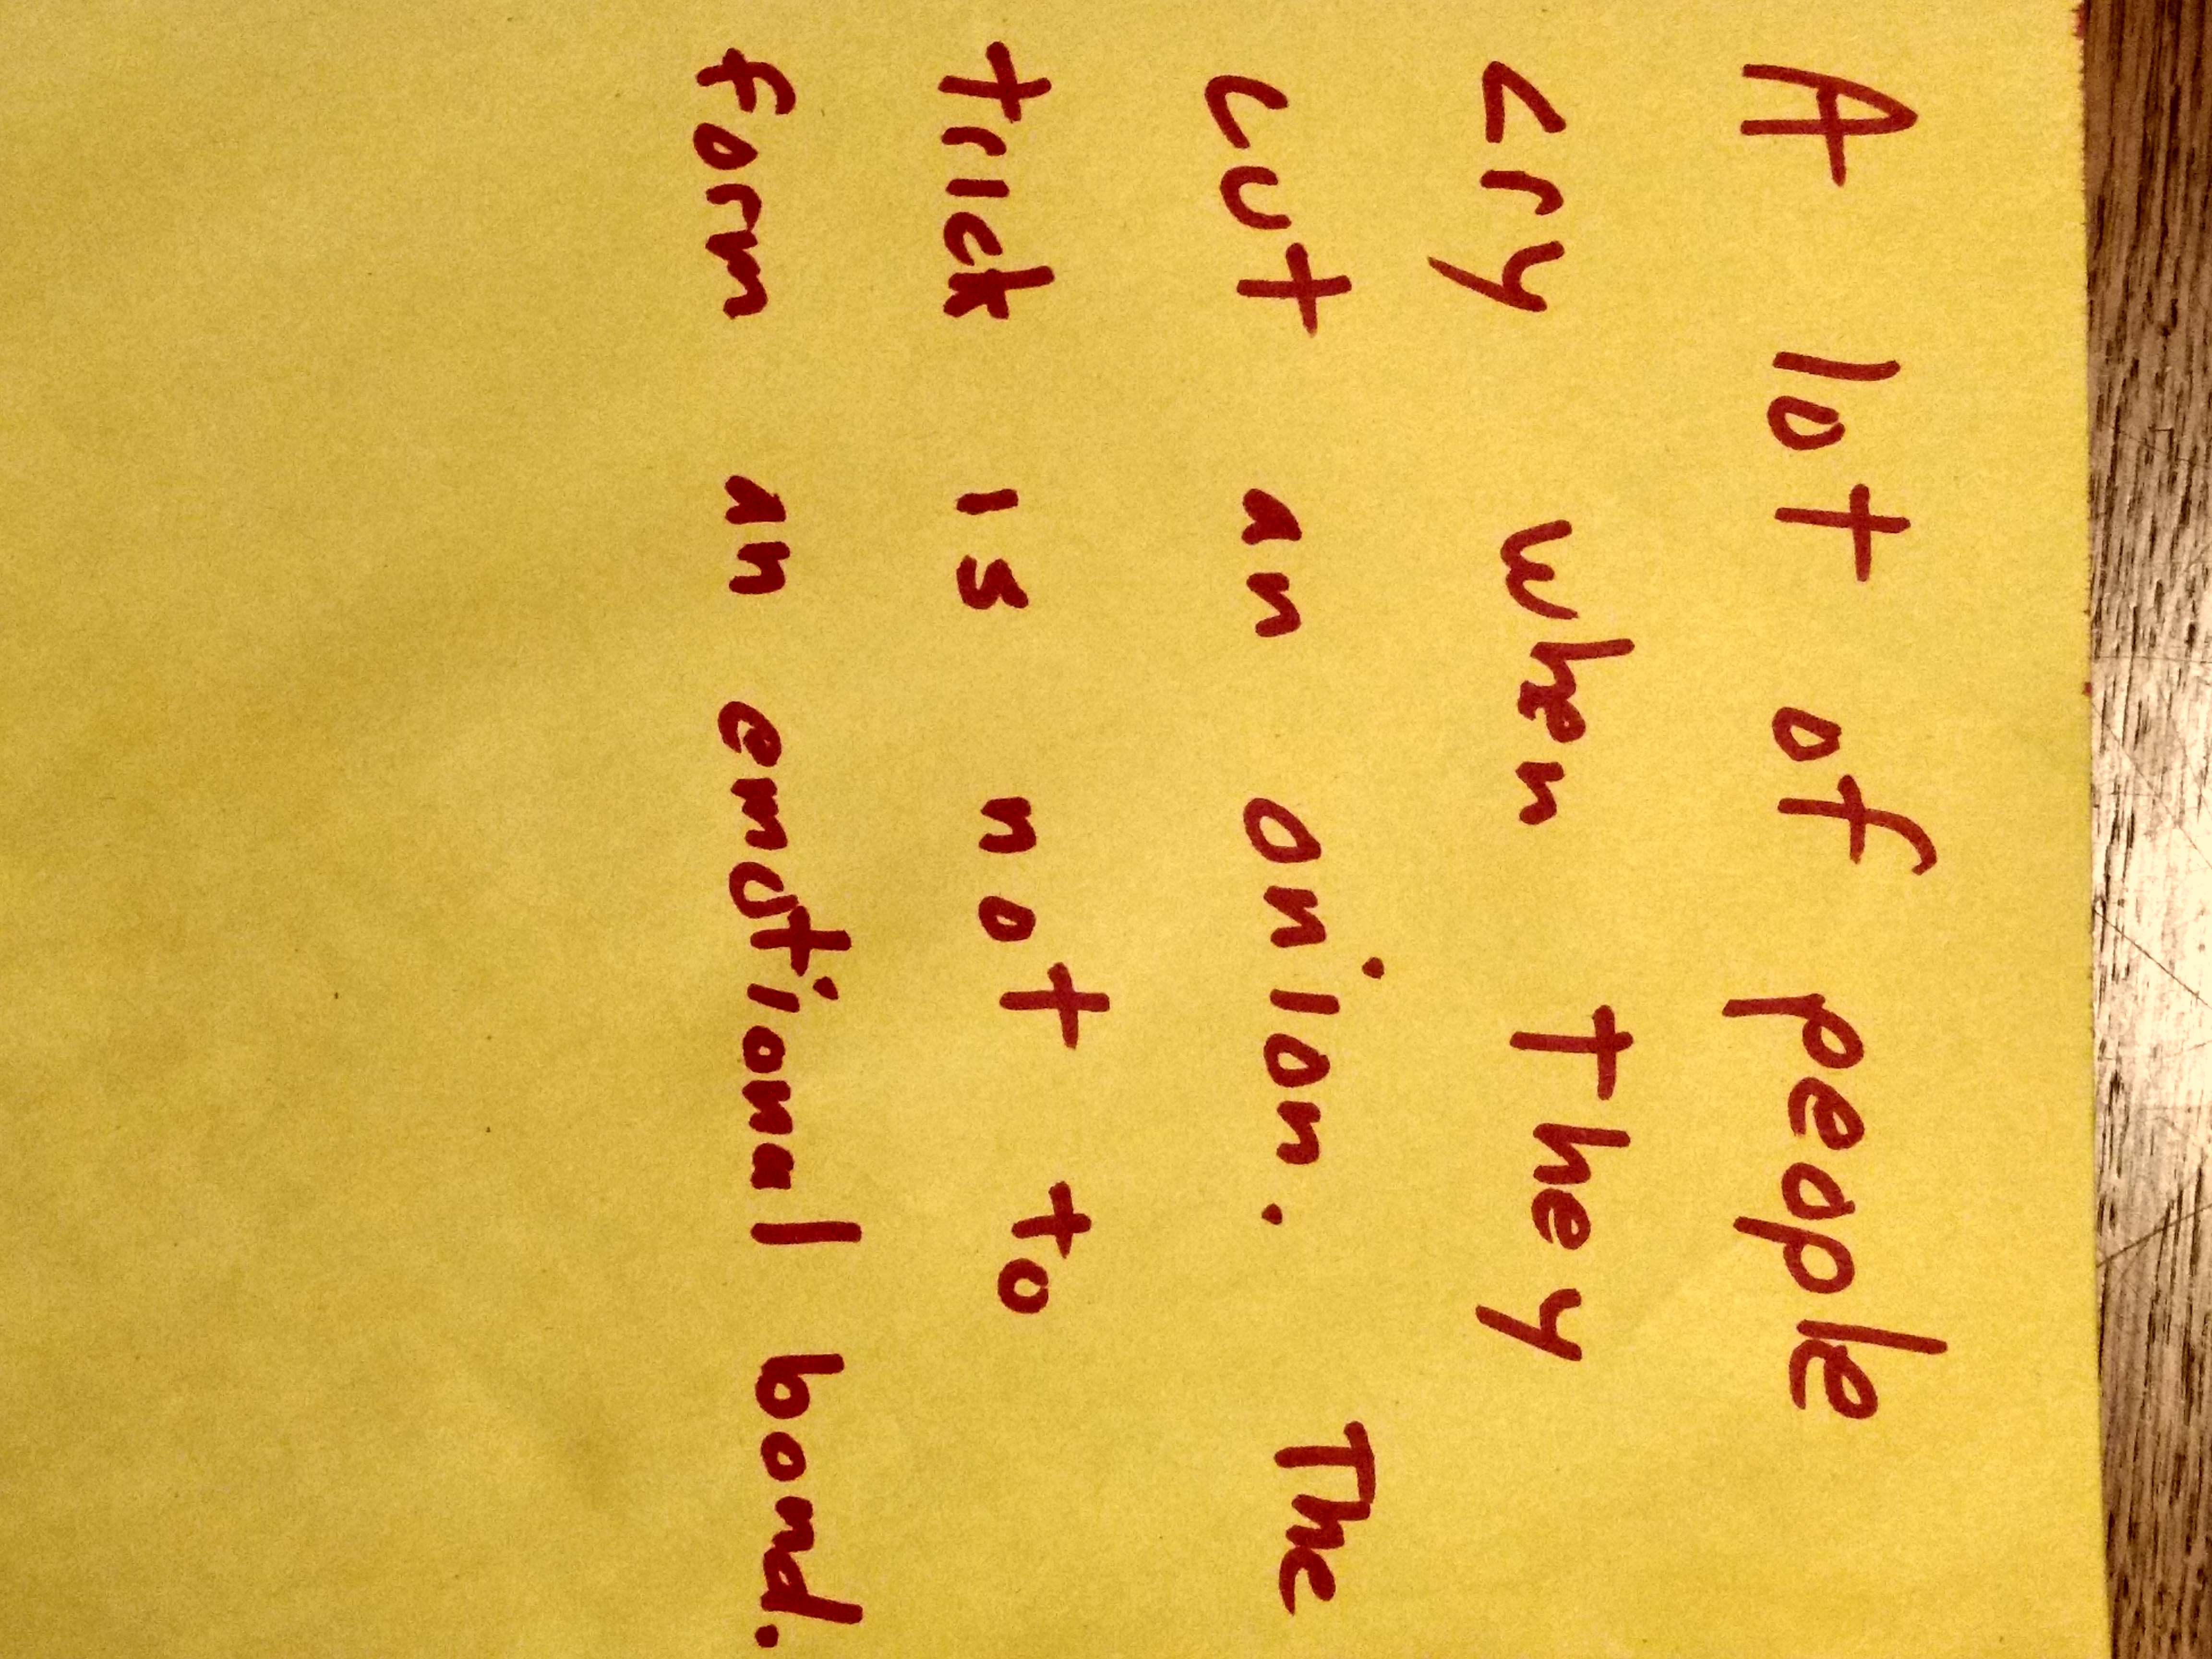 A lot of people
cry when they
cut an onion. The
trick is not to
form an emotional bond.